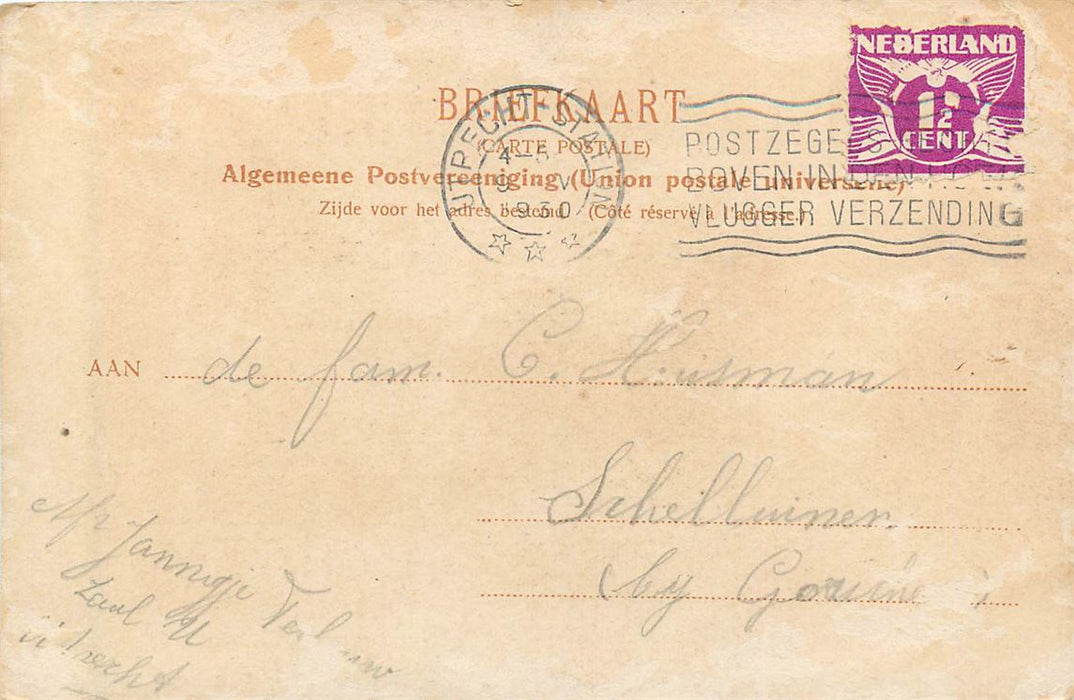 NEDERLAND
1½
CENT
BRIEFKAART
(CARTE POSTALE)
Algemeene Postvereeniging (Union postale universelle)
Zijde voor het adres bestemd (Côté réservé à l'adresse.)
UTRECHT STATION
1930
POSTZEGELS
BOVEN IN DEN HOEK
VLUGGER VERZENDING
AAN de fam. C. Huisman
Schelluinen
by Gorinc
Afz Jannigje
Zaal
Utrecht